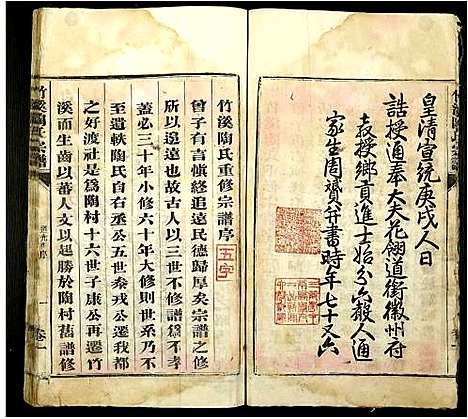 皇清宣統庚戌人日
誥授通奉大夫花翎道銜徽州府
教授鄉貢進士始分六縣人通
家生周贇幷書時年七十又六
竹溪陶氏重修宗譜序
五字
曾子有言慎終追遠民德歸厚矣宗譜之修
所以追遠也故古人以三世不修譜為不孝
蓋必三十年小修六十年大修則世系乃不
至遺軼陶氏自丞公五世參戎公三世遷我都
之好渡社是為陶村十六世子康公再遷竹
溪而生齒以蕃人文以起勝於陶村舊譜修
竹溪陶氏宗譜
序
一
卷